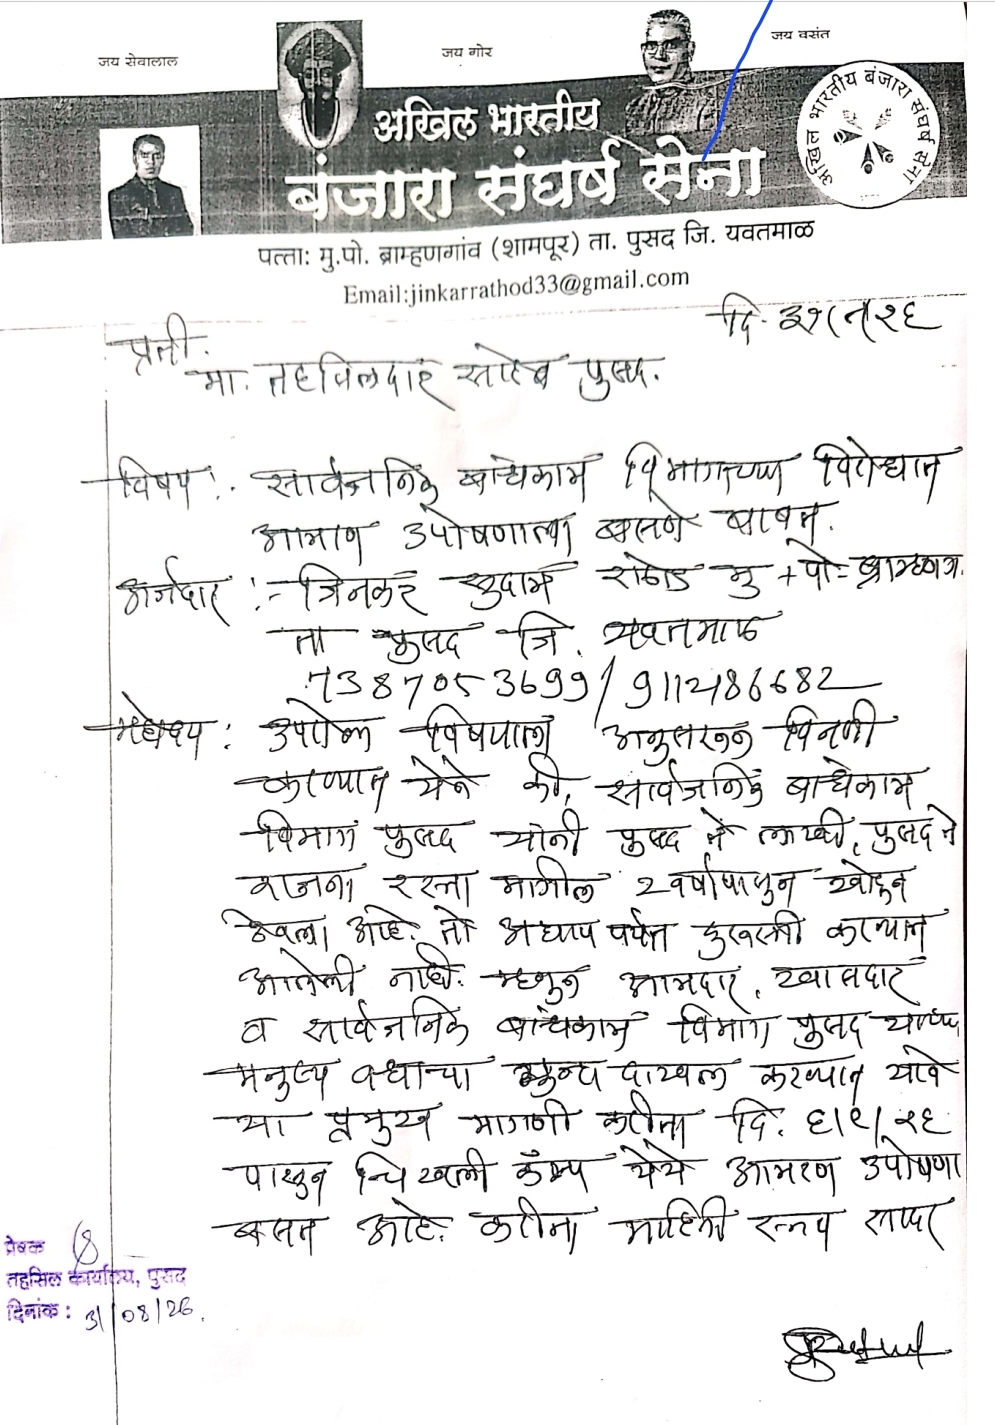 जय सेवालाल
जय गोर
जय वसंत
अखिल भारतीय
बंजारा संघर्ष सेना
अखिल भारतीय बंजारा संघर्ष सेना
पत्ता: मु.पो. ब्राम्हणगांव (शामपूर) ता. पुसद जि. यवतमाळ
Email:jinkarrathod33@gmail.com
दि. ३१/८/२६
प्रती.
मा. तहसिलदार साहेब पुसद.
विषय :- सार्वजनिक बांधकाम विभागाच्या विरोधात
आमरण उपोषणाला बसणे बाबत.
अर्जदार :- जिनकर सुदाम राठोड मु + पो =
ता पुसद जि. यवतमाळ
7387053699 / 9112486682
महोदय : उपरोक्त विषयाला अनुसरून विनंती
करण्यात येते की, सार्वजनिक बांधकाम
विभाग पुसद यांनी पुसद ते पुसद ते
रस्ता मागील २ वर्षापासुन खोदुन
ठेवला आहे. तो अद्याप पर्यंत दुरूस्ती करण्यात
आलेली नाही. म्हणुन आमदार, खासदार
व सार्वजनिक बांधकाम विभाग पुसद यांच्या
मनुष्य वधाचा गुन्हा दाखल करण्यात यावे
या प्रमुख मागणी करीता दि. ६/९/२६
पासुन चिखली कॅम्प येथे आमरण उपोषणा
बसत आहे. करीता माहिती सादर
प्रेषक
तहसिल कार्यालय, पुसद
दिनांक : 31/08/26.